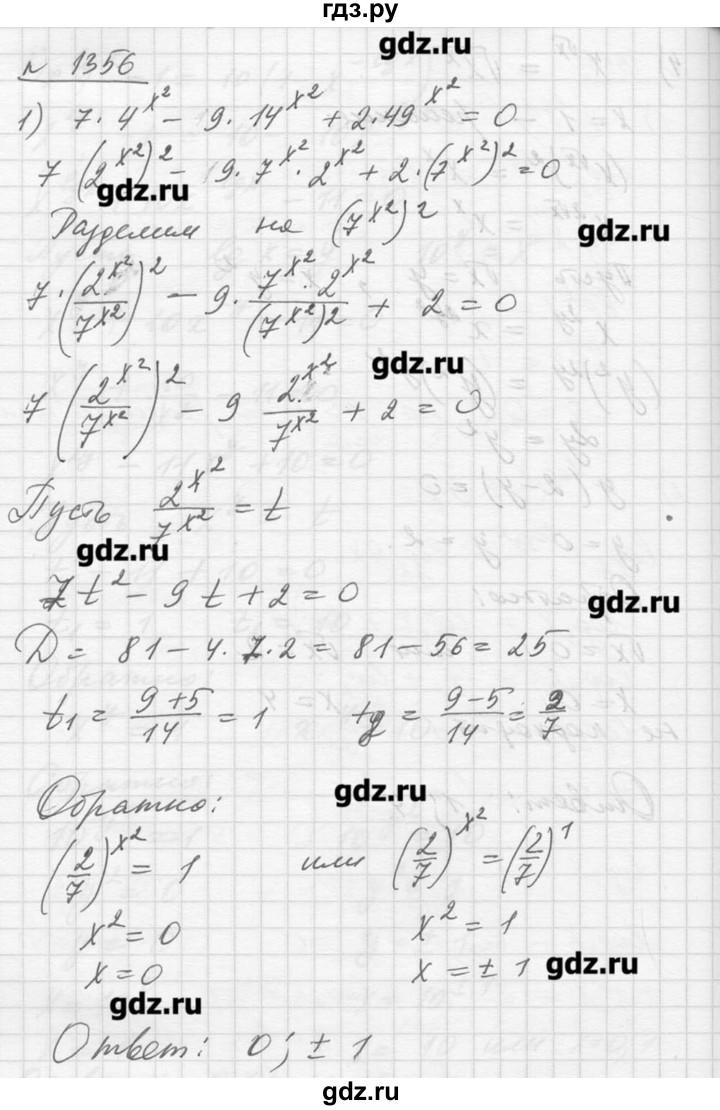 гдз.ру
gdz.ru
n 1356
1) 7·4^x² − 9·14^x² + 2·49^x² = 0
7(2^x²)² − 9·7^x²·2^x² + 2·(7^x²)² = 0
gdz.ru
Разделим на (7^x²)²
gdz.ru
7·(2^x²/7^x²)² − 9·(7^x²·2^x²)/(7^x²)² + 2 = 0
gdz.ru
7(2^x²/7^x²)² − 9 2^x²/7^x² + 2 = 0
Пусть 2^x²/7^x² = t
gdz.ru
7t² − 9t + 2 = 0
gdz.ru
D = 81 − 4·7·2 = 81 − 56 = 25
t₁ = (9+5)/14 = 1 t₂ = (9−5)/14 = 2/7
gdz.ru
Обратно:
(2/7)^x² = 1 или (2/7)^x² = (2/7)^1
x² = 0 x² = 1
x = 0 x = ± 1
gdz.ru
gdz.ru
Ответ: 0; ± 1
gdz.ru